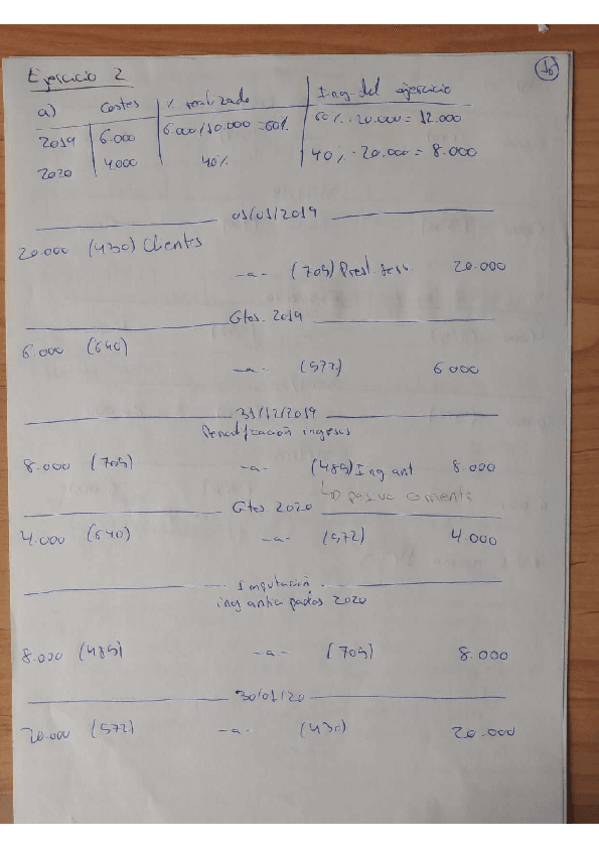 Ejercicio 2
a) Costes % realizado Ing. del ejercicio
2019 6.000 6.000/10.000 = 60% 60% · 20.000 = 12.000
2020 4.000 40% 40% · 20.000 = 8.000
01/01/2019
20.000 (430) Clientes
-a- (705) Prest. serv. 20.000
Gtos. 2019
6.000 (640)
-a- (572) 6.000
31/12/2019
Periodificación ingresos
8.000 (705) -a- (485) Ing ant 8.000
↳ pasivo corriente
Gtos. 2020
4.000 (640) -a- (572) 4.000
Imputación
ing anticipados 2020
8.000 (485) -a- (705) 8.000
30/01/20
20.000 (572) -a- (430) 20.000